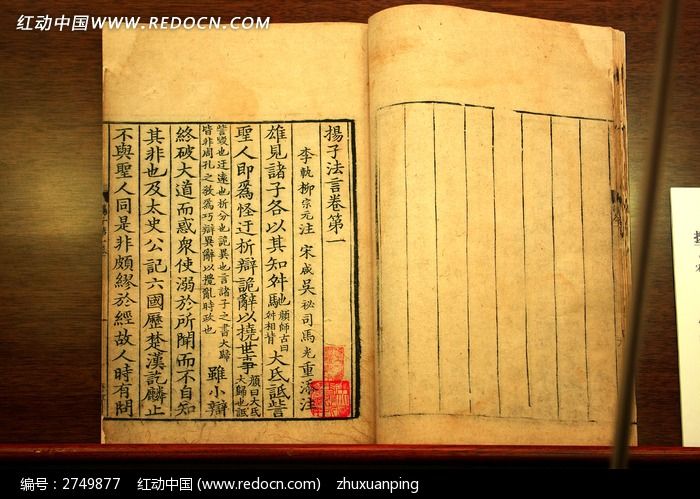 红动中国 WWW.REDOCN.COM
揚子法言卷第一
李軌柳宗元注 宋咸吳祕司馬光重添注
雄見諸子各以其知舛馳顏師古曰舛相背大氐詆訾
聖人即爲怪迂析辯詭辭以撓世事顏曰大氐大歸也詆
訾毀也迂遠也析分也詭異也言諸子之書大歸
皆非周孔之教爲巧辯異辭以攪亂時政也雖小辯
終破大道而惑衆使溺於所聞而不自知
其非也及太史公記六國歷楚漢訖麟止
不與聖人同是非頗繆於經故人時有問
编号：2749877 红动中国 (www.redocn.com) zhuxuanping